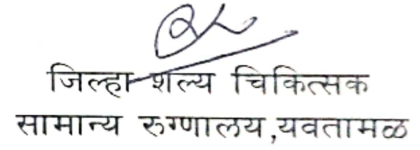 जिल्हा शल्य चिकित्सक
सामान्य रुग्णालय,यवतामळ